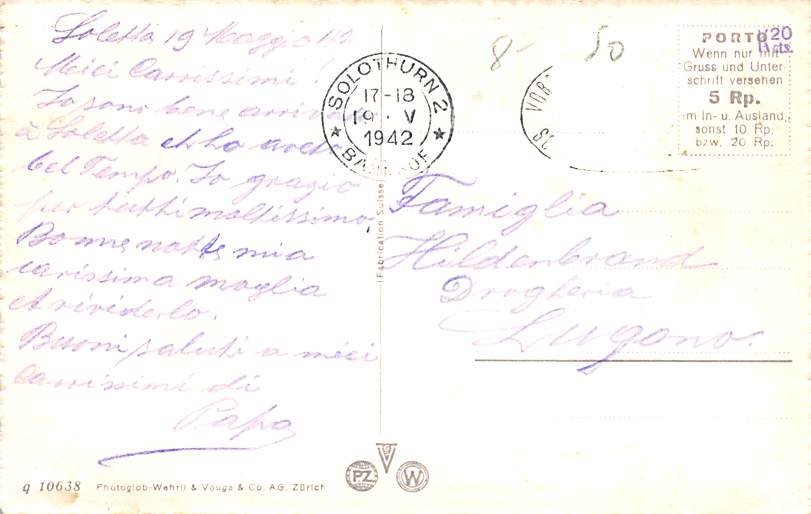 Soletta 19 Maggio 1942
Miei Carrissimi!
Io sono bene arrivato
à Soletta et ho avuto
bel Tempo. Io grazio
per tutti moltissimo,
Bonne notte mia
carissima moglia
et rividerlo.
Buoni saluti a miei
Carrissimi di
Papa
q 10638 Photoglob-Wehrli & Vouga & Co. AG. Zürich
SOLOTHURN 2
17-18
19. V
1942
BAHNHOF
8-
50
PORTO
Wenn nur mit
Gruss und Unter-
schrift versehen
5 Rp.
im In- u. Ausland,
sonst 10 Rp.
bzw. 20 Rp.
20
cts.
Fabrication Suisse
Famiglia
Hildenbrand
Drogheria
Lugano.
PZ
W